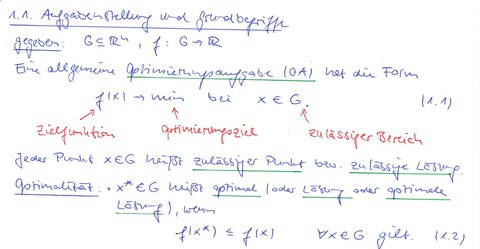 1.1. Aufgabenstellung und Grundbegriffe
gegeben: G ⊆ ℝⁿ, f: G → ℝ
Eine allgemeine Optimierungsaufgabe (OA) hat die Form
f(x) → min bei x ∈ G. (1.1)
Zielfunktion Optimierungsziel zulässiger Bereich
Jeder Punkt x ∈ G heißt zulässiger Punkt bzw. zulässige Lösung.
Optimalität: • x* ∈ G heißt optimal (oder Lösung oder optimale
Lösung), wenn
f(x*) ≤ f(x) ∀x ∈ G gilt. (1.2)